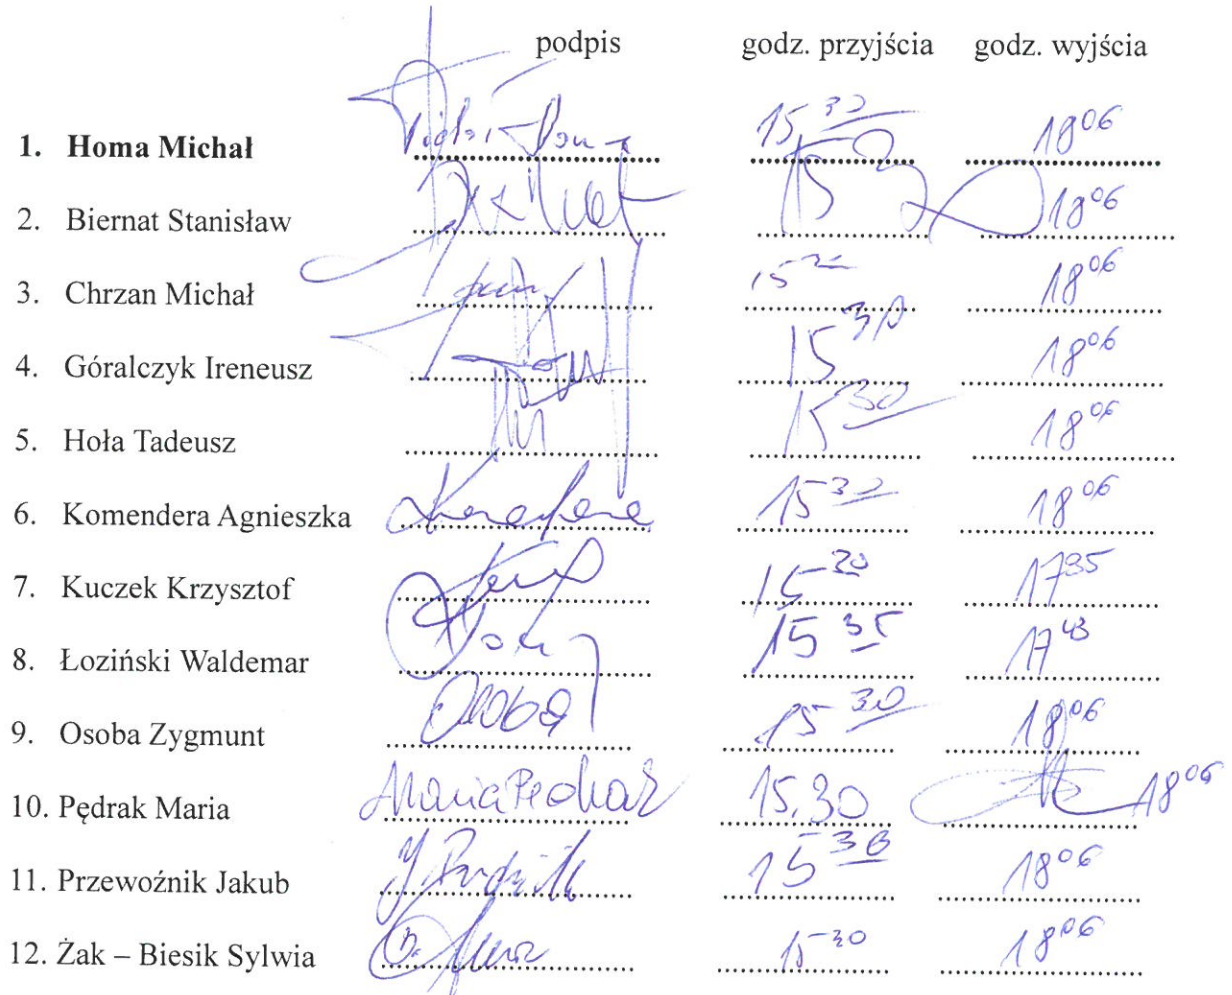 podpis godz. przyjścia godz. wyjścia
1. Homa Michał 15 30 18 06
2. Biernat Stanisław 18 06
3. Chrzan Michał 18 06
4. Góralczyk Ireneusz 15 30 18 06
5. Hoła Tadeusz 15 30 18 06
6. Komendera Agnieszka 15 30 18 06
7. Kuczek Krzysztof 15 30 17 35
8. Łoziński Waldemar 15 35 17 43
9. Osoba Zygmunt Osoba 15 30 18 06
10. Pędrak Maria Maria Pędrak 15.30 18 06
11. Przewoźnik Jakub 15 18 06
12. Żak – Biesik Sylwia 15 30 18 06